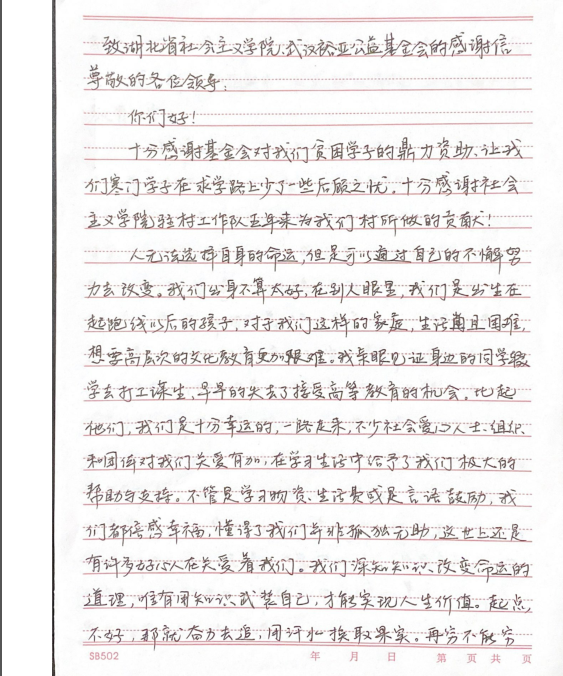 致湖北省社会主义学院、武汉裕亚公益基金会的感谢信
尊敬的各位领导:
你们好!
十分感谢基金会对我们贫困学子的鼎力资助、让我
们寒门学子在求学路上少了一些后顾之忧。十分感谢社会
主义学院驻村工作队五年来为我们村所做的贡献!
人无法选择自身的命运,但是可以通过自己的不懈努
力去改变。我们出身不算太好,在别人眼里,我们是出生在
起跑线以后的孩子,对于我们这样的家庭,生活尚且困难,
想要高层次的文化教育更加艰难。我亲眼见证身边的同学辍
学去打工谋生,早早的失去了接受高等教育的机会。比起
他们,我们是十分幸运的,一路走来,不少社会爱心人士、组织、
和团体对我们关爱有加,在学习生活中给予了我们极大的
帮助与支持。不管是学习物资、生活费或是言语鼓励,我
们都倍感幸福,懂得了我们并非孤独无助,这世上还是
有许多好心人在关爱着我们。我们深知知识改变命运的
道理,唯有用知识武装自己,才能实现人生价值。起点
不好,那就奋力去追,用汗水换取果实。再穷不能穷
SB502 年 月 日 第 页 共 页